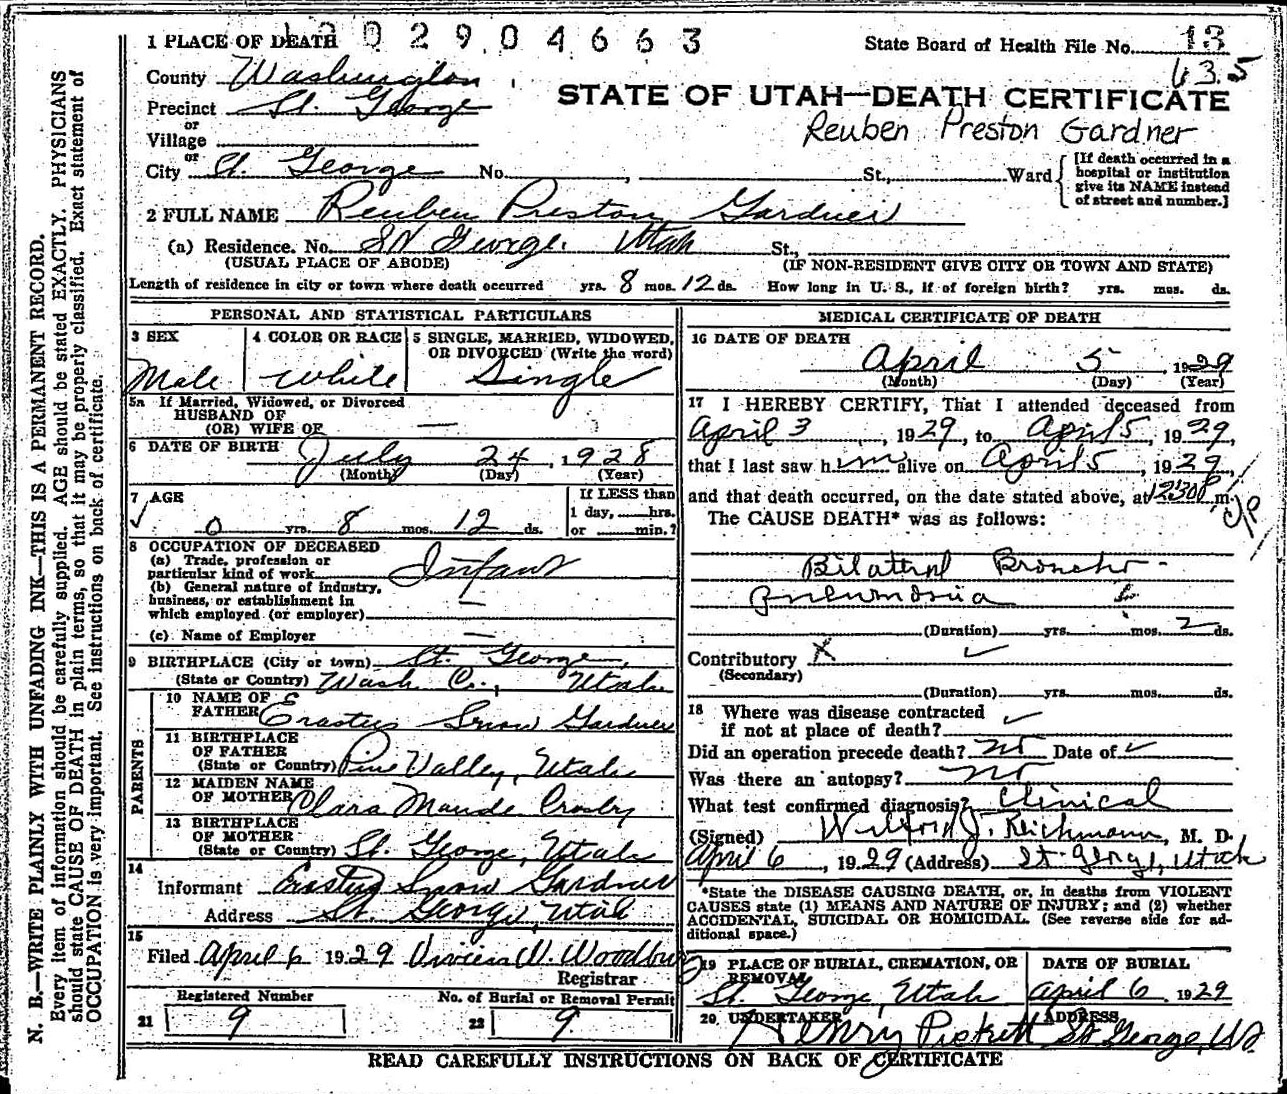 N. B.—WRITE PLAINLY WITH UNFADING INK—THIS IS A PERMANENT RECORD.
Every item of information should be carefully supplied. AGE should be stated EXACTLY. PHYSICIANS
should state CAUSE OF DEATH in plain terms, so that it may be properly classified. Exact statement of
OCCUPATION is very important. See instructions on back of certificate.
1 PLACE OF DEATH 02904663 State Board of Health File No. 13
63.5
County Washington
STATE OF UTAH—DEATH CERTIFICATE
Precinct St. George
Reuben Preston Gardner
or
Village
or
City St. George No. , St., Ward
[If death occurred in a
hospital or institution
give its NAME instead
of street and number.]
2 FULL NAME Reuben Preston Gardner
(a) Residence. No. St George. Utah St.,
(USUAL PLACE OF ABODE) (IF NON-RESIDENT GIVE CITY OR TOWN AND STATE)
Length of residence in city or town where death occurred yrs. 8 mos. 12 ds. How long in U. S., if of foreign birth? yrs. mos. ds.
PERSONAL AND STATISTICAL PARTICULARS
3 SEX 4 COLOR OR RACE 5 SINGLE, MARRIED, WIDOWED,
OR DIVORCED (Write the word)
Male White Single
5a If Married, Widowed, or Divorced
HUSBAND OF
(OR) WIFE OF —
6 DATE OF BIRTH July 24, 1928
(Month) (Day) (Year)
7 AGE If LESS than
1 day, hrs.
0 yrs. 8 mos. 12 ds. or min.?
8 OCCUPATION OF DECEASED
(a) Trade, profession or
particular kind of work Infant
(b) General nature of industry,
business, or establishment in
which employed (or employer) —
(c) Name of Employer —
9 BIRTHPLACE (City or town) St. George,
(State or Country) Wash Co., Utah
PARENTS
10 NAME OF
FATHER Erastus Snow Gardner
11 BIRTHPLACE
OF FATHER
(State or Country) Pine Valley, Utah
12 MAIDEN NAME
OF MOTHER Clara Maude Crosby
13 BIRTHPLACE
OF MOTHER
(State or Country) St. George, Utah
14
Informant Erastus Snow Gardner
Address St. George, Utah
15
Filed April 6 1929 Vivian W. Woodbury
Registrar
Registered Number No. of Burial or Removal Permit
21 9 22 9
MEDICAL CERTIFICATE OF DEATH
16 DATE OF DEATH
April 5, 1929
(Month) (Day) (Year)
17 I HEREBY CERTIFY, That I attended deceased from
April 3, 1929, to April 5, 1929,
that I last saw him alive on April 5, 1929
and that death occurred, on the date stated above, at 12:30 P m.
The CAUSE DEATH* was as follows:
Bilateral Broncho-
Pneumonia
(Duration) yrs. mos. 2 ds.
Contributory X ✓
(Secondary)
(Duration) yrs. mos. ds.
18 Where was disease contracted
if not at place of death? ✓
Did an operation precede death? no Date of ✓
Was there an autopsy? no
What test confirmed diagnosis? Clinical
(Signed) Wilford J. Reichmann, M. D.
April 6, 1929 (Address) St. George, Utah
*State the DISEASE CAUSING DEATH, or, in deaths from VIOLENT
CAUSES state (1) MEANS AND NATURE OF INJURY; and (2) whether
ACCIDENTAL, SUICIDAL OR HOMICIDAL. (See reverse side for ad-
ditional space.)
19 PLACE OF BURIAL, CREMATION, OR DATE OF BURIAL
REMOVAL
St. George, Utah April 6 1929
20 UNDERTAKER ADDRESS
Henry Pickett St George, Ut.
READ CAREFULLY INSTRUCTIONS ON BACK OF CERTIFICATE